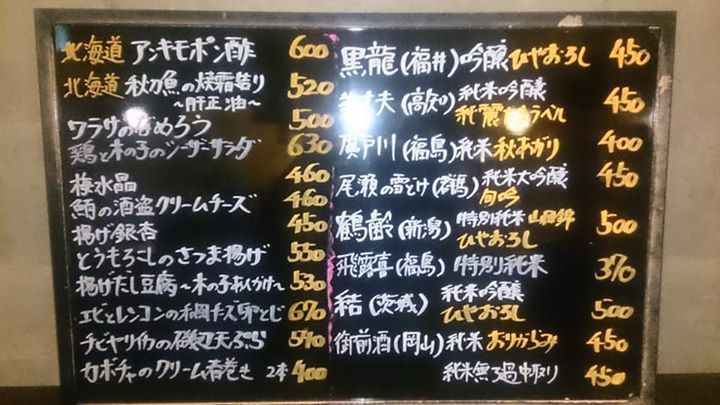 北海道 アンキモポン酢 600
北海道 秋刀魚の焼霜造り 520
～肝正油～
ワラサのなめろう 500
鶏と木の子のシーザーサラダ 630
梅水晶 460
鮪の酒盗クリームチーズ 460
揚げ銀杏 450
とうもろこしのさつま揚げ 550
揚げだし豆腐～木の子あんかけ～ 530
エビとレンコンの柳チーズ卵とじ 670
チビヤリイカの磯辺天ぷら 590
カボチャのクリーム春巻き 2本 400
黒龍(福井)吟醸 ひやおろし 450
丈夫(高知)純米吟醸 450
秋 ラベル
廣戸川(福島)純米 秋あがり 400
尾瀬の雪どけ(群馬)純米大吟醸 450
旬吟
鶴齢(新潟)特別純米 山田錦 500
ひやおろし
飛露喜(福島)特別純米 370
結(茨城)純米吟醸 500
ひやおろし
御前酒(岡山)純米 おりがらみ 450
純米無ろ過中取り 450